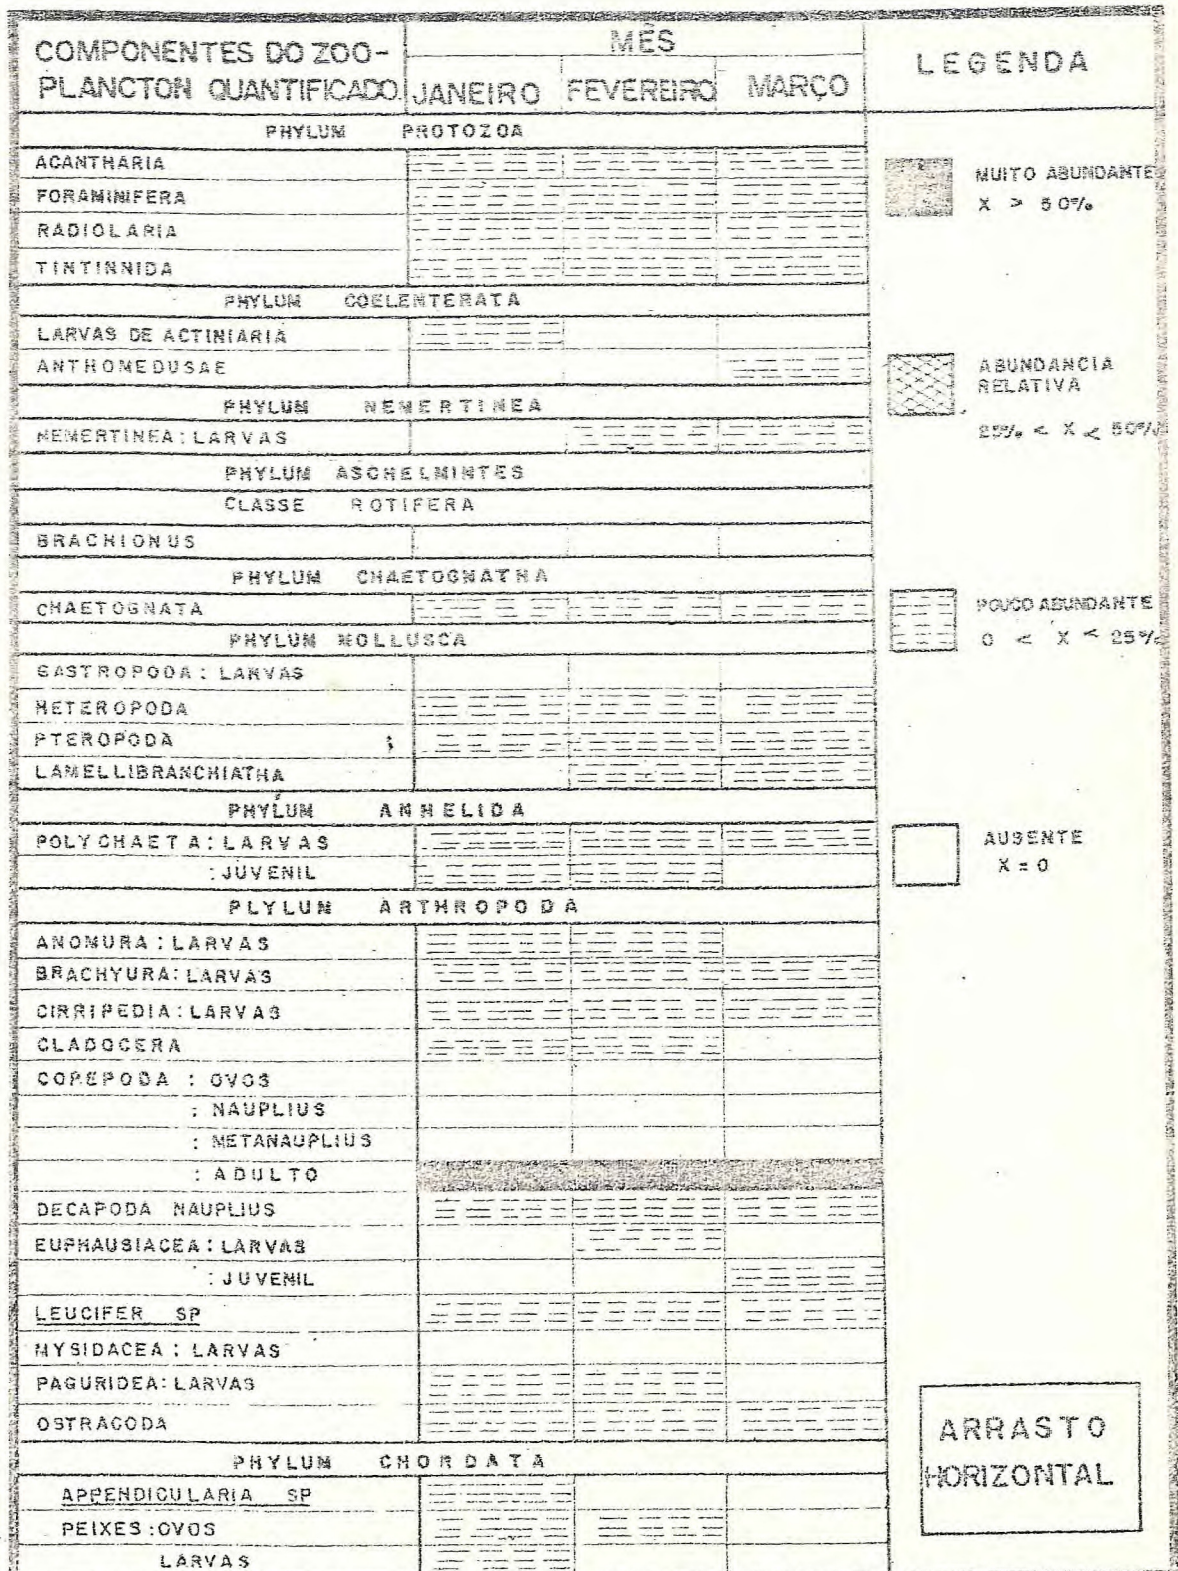 COMPONENTES DO ZOO-
PLANCTON QUANTIFICADO
MÊS
JANEIRO FEVEREIRO MARÇO
LEGENDA
PHYLUM PROTOZOA
ACANTHARIA
FORAMINIFERA
RADIOLARIA
TINTINNIDA
PHYLUM COELENTERATA
LARVAS DE ACTINIARIA
ANTHOMEDUSAE
PHYLUM NEMERTINEA
NEMERTINEA: LARVAS
PHYLUM ASCHELMINTES
CLASSE ROTIFERA
BRACHIONUS
PHYLUM CHAETOGNATHA
CHAETOGNATA
PHYLUM MOLLUSCA
GASTROPODA: LARVAS
HETEROPODA
PTEROPODA ;
LAMELLIBRANCHIATHA
PHYLUM ANNELIDA
POLYCHAETA: LARVAS
: JUVENIL
PLYLUM ARTHROPODA
ANOMURA: LARVAS
BRACHYURA: LARVAS
CIRRIPEDIA: LARVAS
CLADOCERA
COPEPODA : OVOS
: NAUPLIUS
: METANAUPLIUS
: ADULTO
DECAPODA NAUPLIUS
EUPHAUSIACEA: LARVAS
: JUVENIL
LEUCIFER SP
MYSIDACEA: LARVAS
PAGURIDEA: LARVAS
OSTRACODA
PHYLUM CHORDATA
APPENDICULARIA SP
PEIXES: OVOS
LARVAS
MUITO ABUNDANTE
X > 50%
ABUNDANCIA
RELATIVA
25% < X < 50%
POUCO ABUNDANTE
0 < X < 25%
AUSENTE
X = 0
ARRASTO
HORIZONTAL